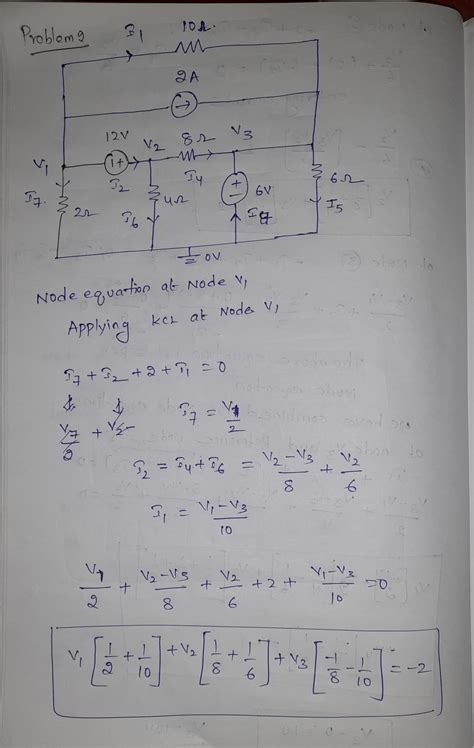 Problem 2
I1 10Ω
2A
12V V2 8Ω V3
V1 I2 I4 6V 6Ω
I7 2Ω I6 4Ω I8 I5
0V
Node equation at Node V1
Applying KCL at Node V1
I7 + I2 + 2 + I1 = 0
V7/2 + V2- I7 = V1/2
I2 = I4 + I6 = V2-V3/8 + V2/6
I1 = V1-V3/10
V1/2 + V2-V3/8 + V2/6 + 2 + V1-V3/10 = 0
V1 [1/2 + 1/10] + V2 [1/8 + 1/6] + V3 [-1/8 - 1/10] = -2